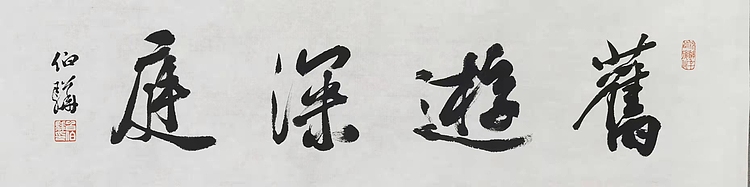 舊遊深庭
伯